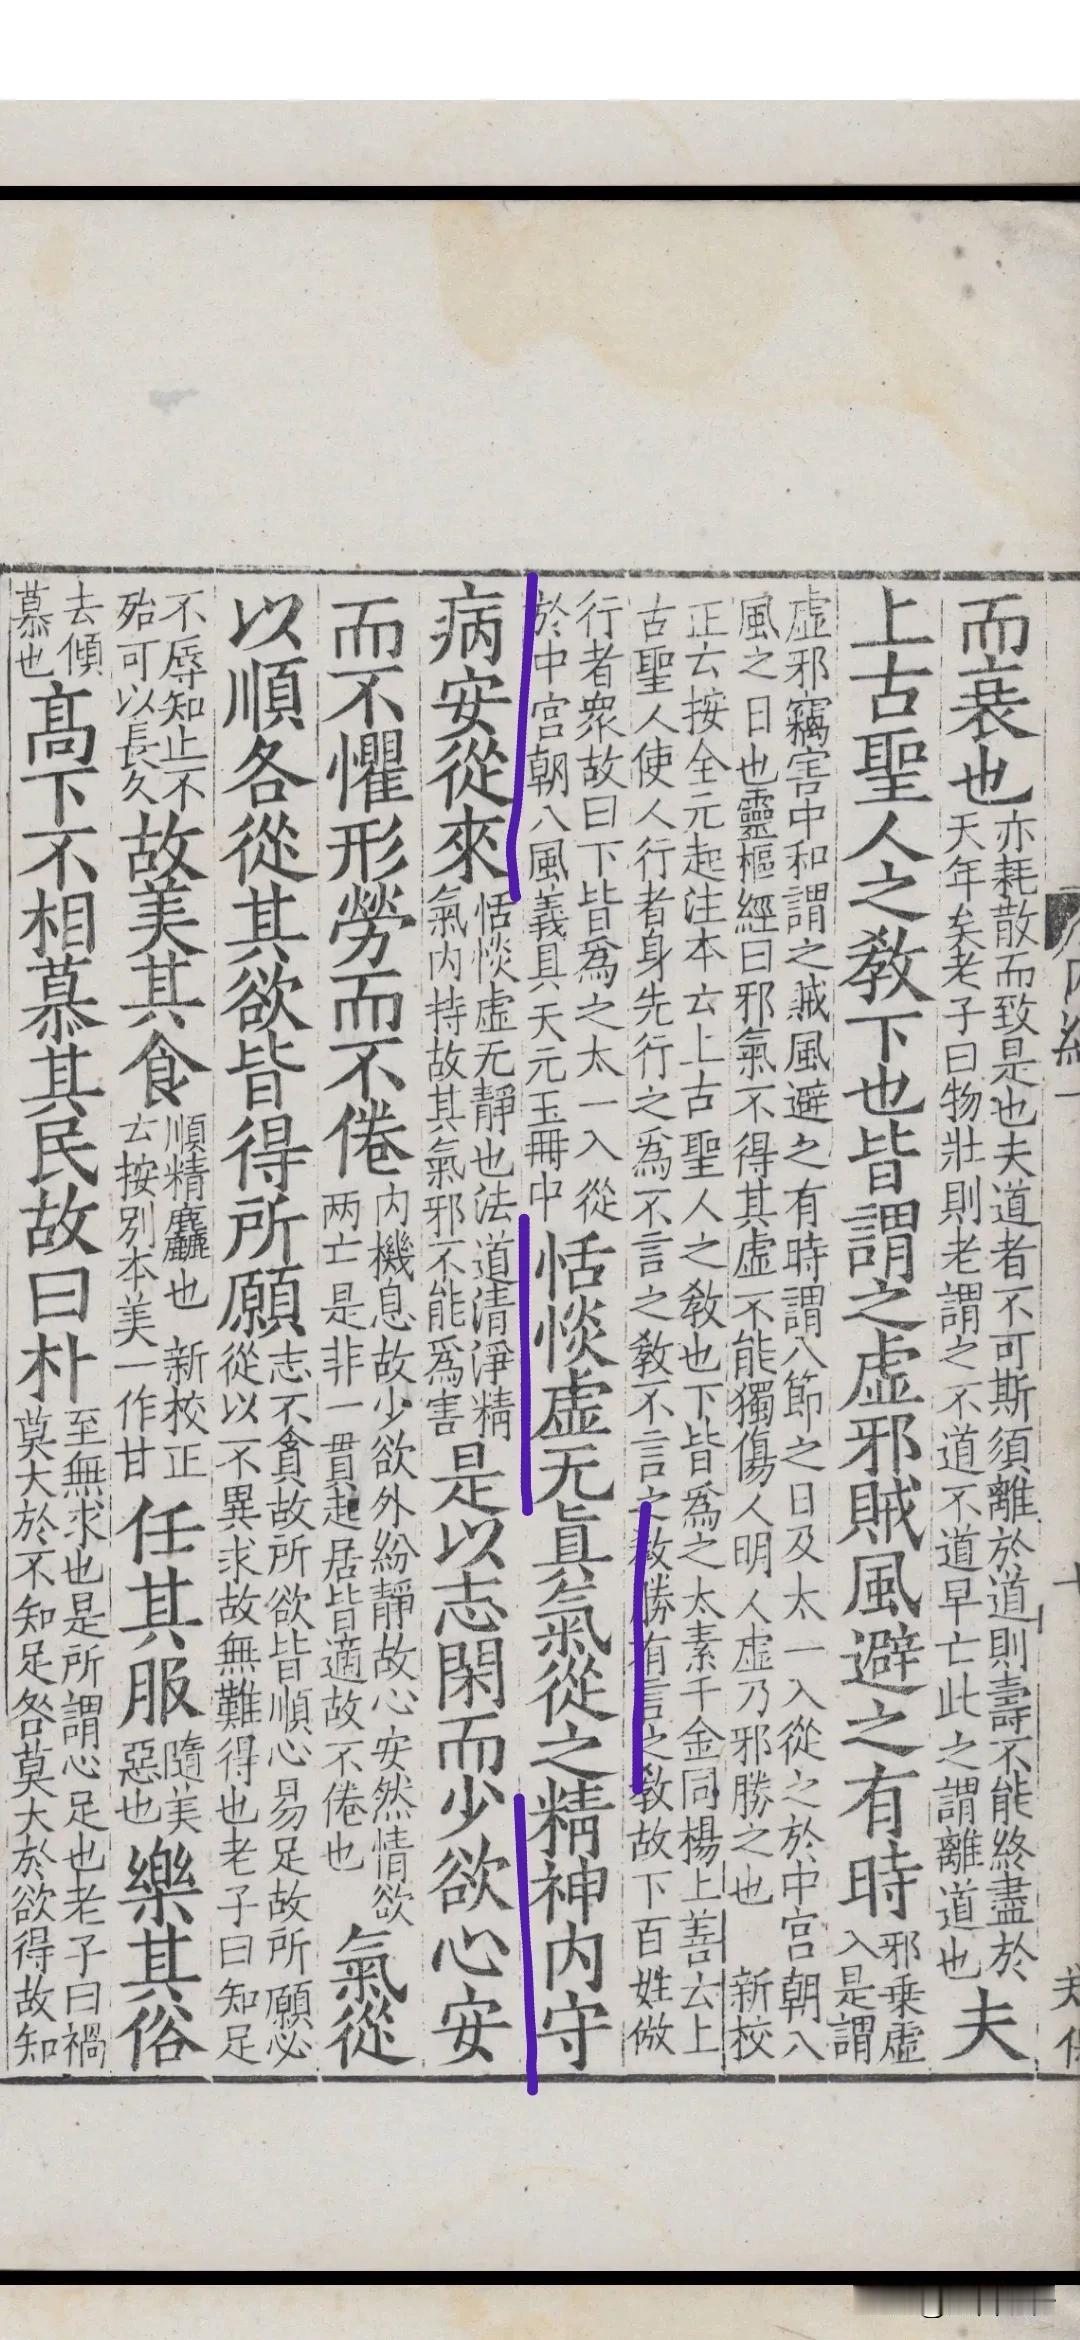 而衰也
亦耗散而致是也夫道者不可斯須離於道則壽不能終盡於
天年矣老子曰物壯則老謂之不道不道早亡此之謂離道也
夫
上古聖人之教下也皆謂之虛邪賊風避之有時
邪乗虛
入是謂
虛邪竊害中和謂之賊風避之有時謂八節之日及太一入從之於中宮朝八
風之日也靈樞經曰邪氣不得其虛不能獨傷人明人虛乃邪勝之也 新校
正云按全元起注本云上古聖人之教也下皆為之太素千金同楊上善云上
古聖人使人行者身先行之為不言之教不言之教勝有言之教故下百姓倣
行者衆故曰下皆為之太一入從
於中宮朝八風義具天元玉冊中
恬惔虛无真氣從之精神內守
病安從來
恬惔虛无靜也法道清淨精
氣內持故其氣邪不能為害
是以志閑而少欲心安
而不懼形勞而不倦
内機息故少欲外紛靜故心安然情欲
两亡是非一貫起居皆適故不倦也
氣從
以順各從其欲皆得所願
志不貪故所欲皆順心易足故所願必
從以不異求故無難得也老子曰知足
不辱知止不
殆可以長久
故美其食
順精麤也 新校正
云按別本美一作甘
任其服
隨美
惡也
樂其俗
去傾
慕也
髙下不相慕其民故曰朴
至無求也是所謂心足也老子曰禍
莫大於不知足咎莫大於欲得故知